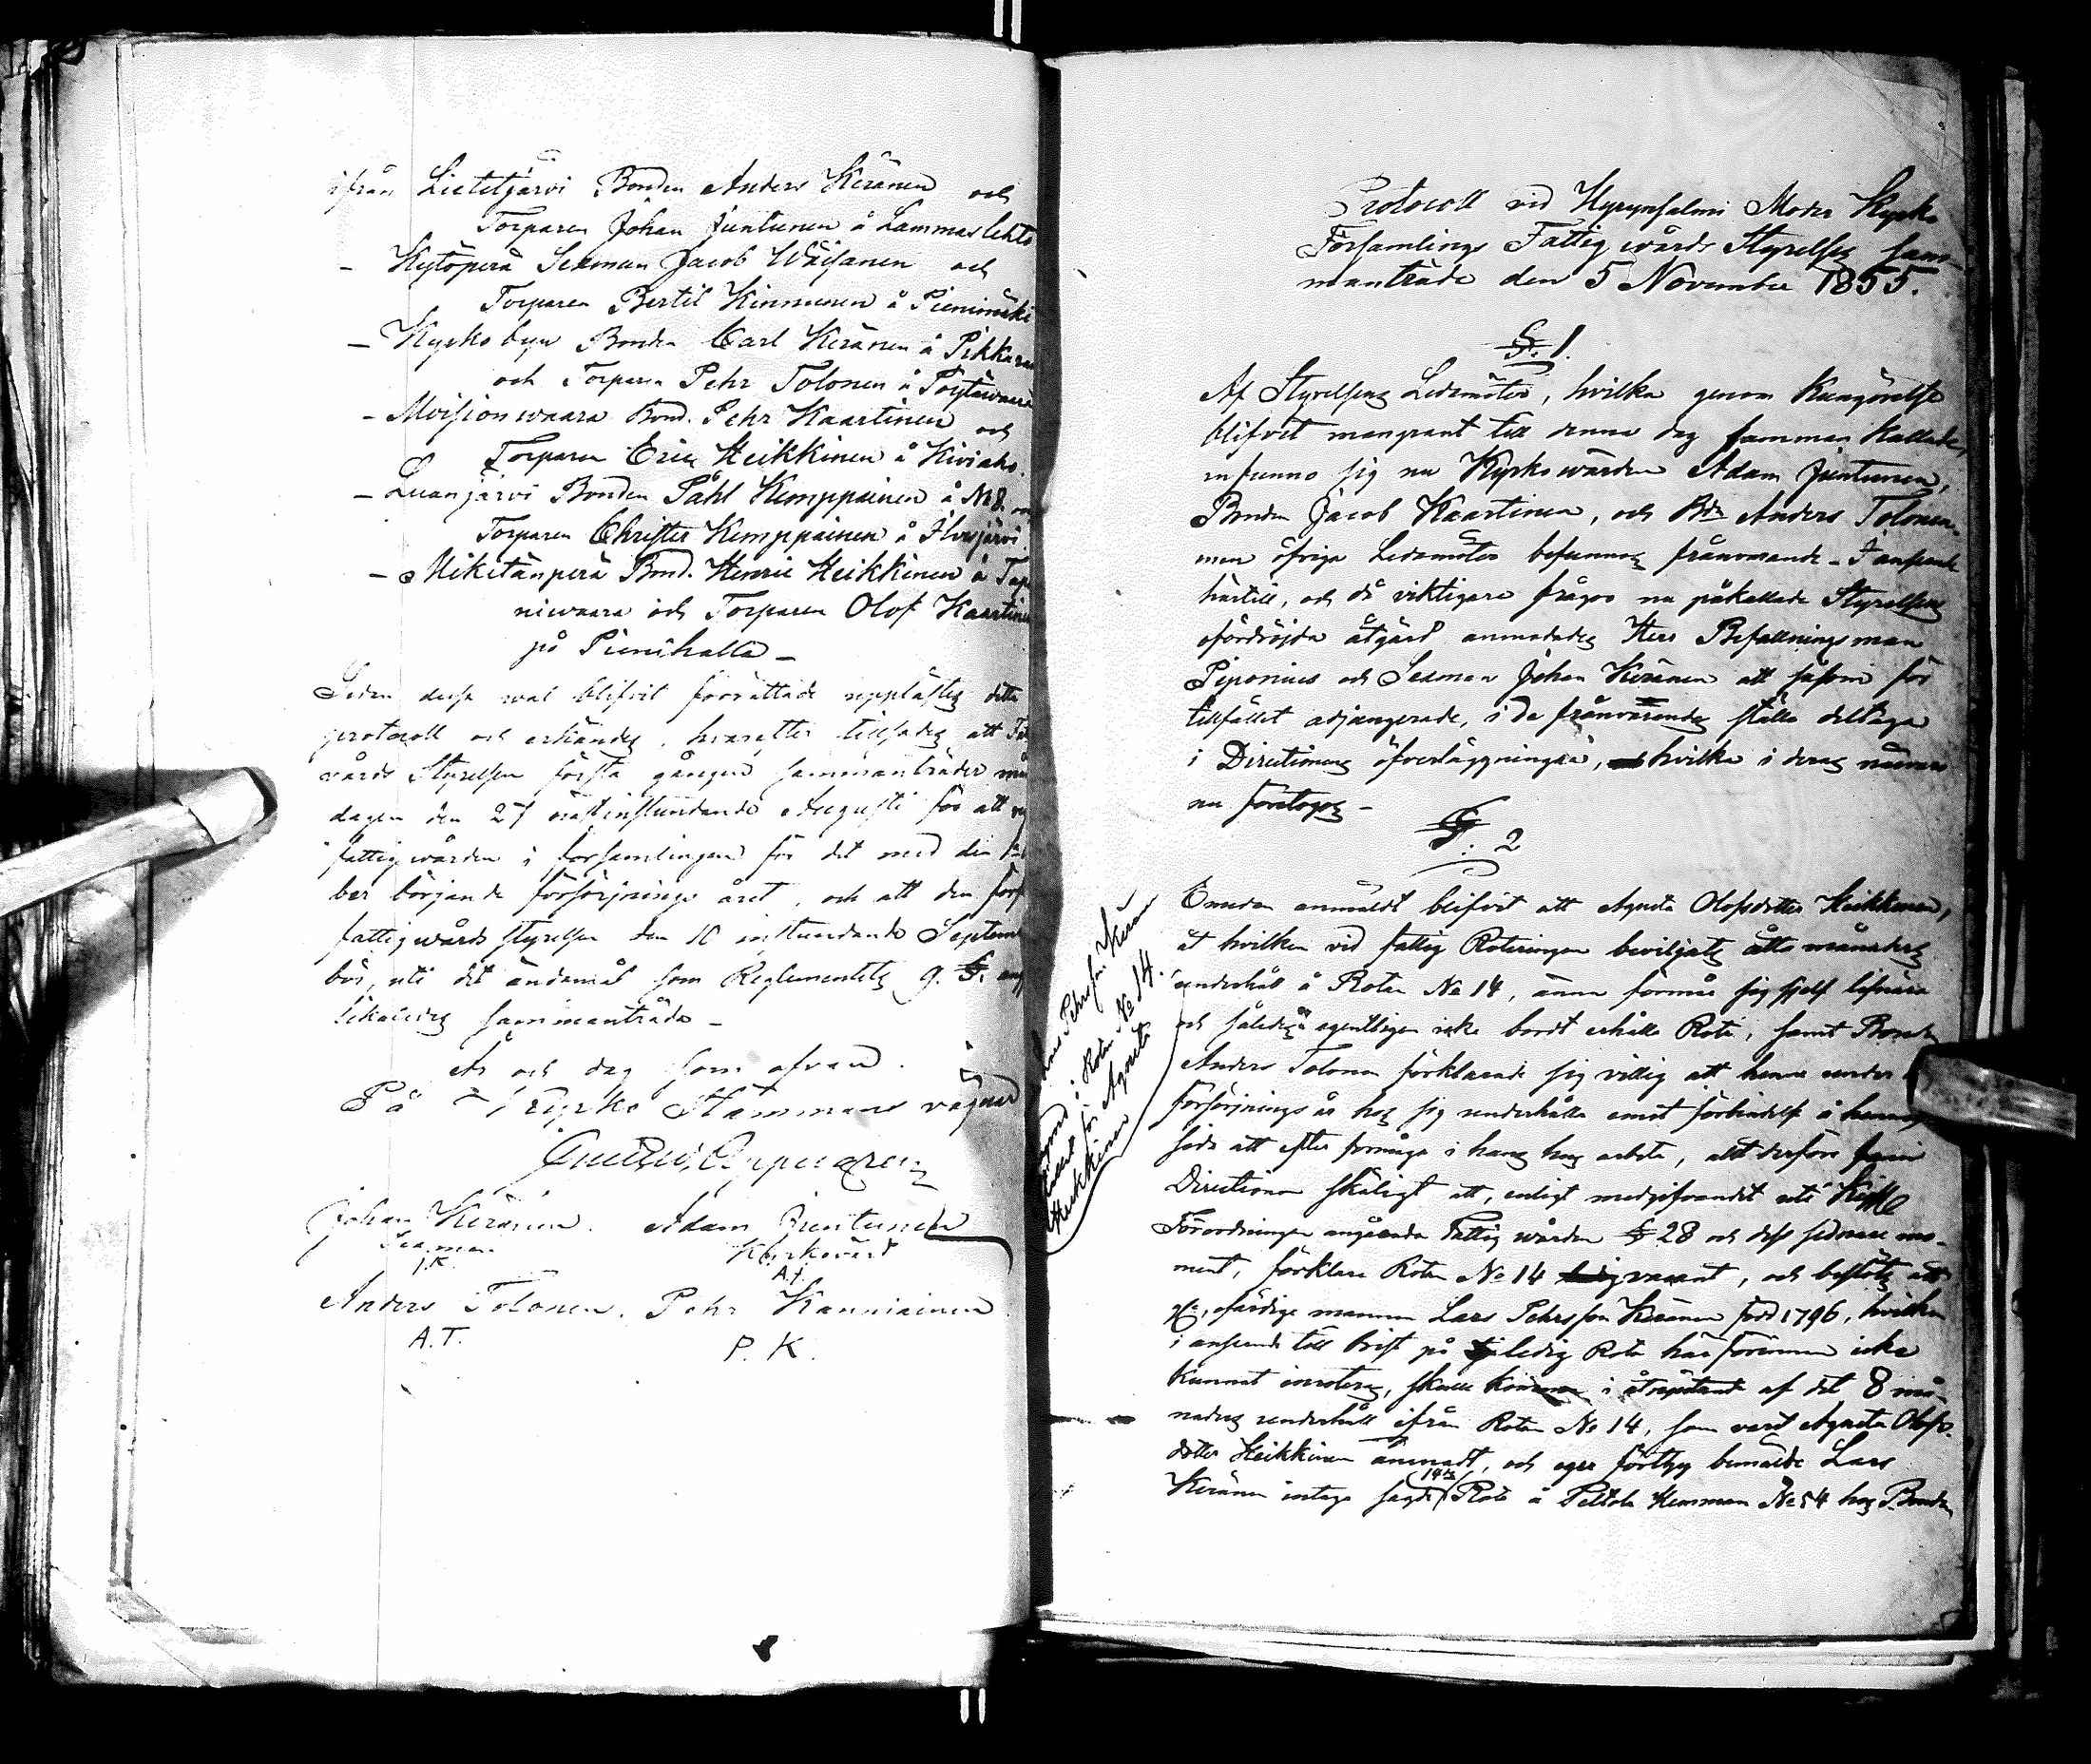 ifrån Lietetjärvi Bonden Anders Keränen och
Torparen Johan Juntunen å Lammaslehto
- Kytöperä Sexman Jacob Wäisänen och
Torparen Bertil Kinnunen å Pienimäki
- Kyrkobyn Bonden Carl Keränen å Pikkara
och Torparen Pehr Tolonen å Pöytäwaara
- Moisionwaara Bond. Pehr Kaartinen och
Torparen Eric Heikkinen å Kiviaho.
- Luanjärvi Bonden Påhl Kemppainen å No 8.
Torparen Christer Kemppainen å Ilvesjärvi
- Mikitänperä Bond. Henric Heikkinen å Tapa
niwaara och Torparen Olof Kaartinen
på Pienihalla -
Sedan dessa val blifvit förrättade upplästes detta
protocoll och erkändes, hvarefter tillsades att Fat
vårds Styrelsen första gången sammanträder mån
dagen den 27 nästinstundande Augusti för att
fattigvården i församlingen för det med den 1
ber börjande försörjnings året, och att den
fattigvårds styrelsen den 10 instundande Septem
ber, uti det ändamål som Reglementets 9. §.
likaledes sammanträda -
År och dag som ofvan.
På Kyrko Stämmans vägnar
Johan Keränen. Adam Juntunen
Sexman Kyrkovärd
J.K. A.J.
Anders Tolonen. Pehr Kanniainen
A.T. P.K.
Protocoll vid Hyrynsalmi Moder Kyrko
Församlings Fattigvårds Styrelses sam-
manträde den 5 November 1855.
§. 1.
Af Styrelsens Ledamöter, hvilka genom Kungörelse
blifvit mangrant till denna dag samman kallade,
infunno sig nu Kyrkovärden Adam Juntunen,
Bonden Jacob Kaartinen, och Bdn Anders Tolonen.
men öfriga Ledamöter befunnos frånvarande - I anseende
härtill, och då viktigare frågor nu påkallade Styrelsens
ofördröjda åtgärd anmodades Herr Befallningsman
Piponius och Sexman Johan Keränen att såsom för
tillfället adjungerade, i de frånvarandes ställe deltaga
i Directionens öfverläggningar, hvilka i deras närvaro
nu företogos -
§. 2
Emedan anmäldt blifvit att Agneta Olofsdotter Heikkinen,
åt hvilken vid fattig Roteringen beviljats åtta månaders
underhåll å Roten No 14, ännu förmår sig sjelf lifnära
och således egentligen icke bordt erhålla Rote, samt Bonden
Anders Tolonen förklarade sig villig att henne under
försörjnings år hos sig underhålla emot förbindelse å hennes
sida att efter förmåga i hans hus arbeta, allt derföre fann
Directionen skäligt att, enligt medgifvandet uti Kejserl.
Förordningen angående Fattigvården § 28 och dess sednare mo-
ment, förklara Roten No 14 vacant, och beslöts att
ofärdige mannen Lars Pehrsson Keränen född 1796, hvilken
i anseende till brist på ledig Rote här förinnan icke
kunnat inroteras, skulle komma i åtnjutande af det 8 må-
naders underhåll ifrån Roten No 14, som varit Agneta Olofs-
dotter Heikkinen ämnadt, och eger förthy bemälde Lars
Keränen intaga sagde 14de Rote å Peltola Hemman No 54 hos Bonden
Lars Pehrsson Kerän
i Roten No 14.
för Agneta
Heikkinen